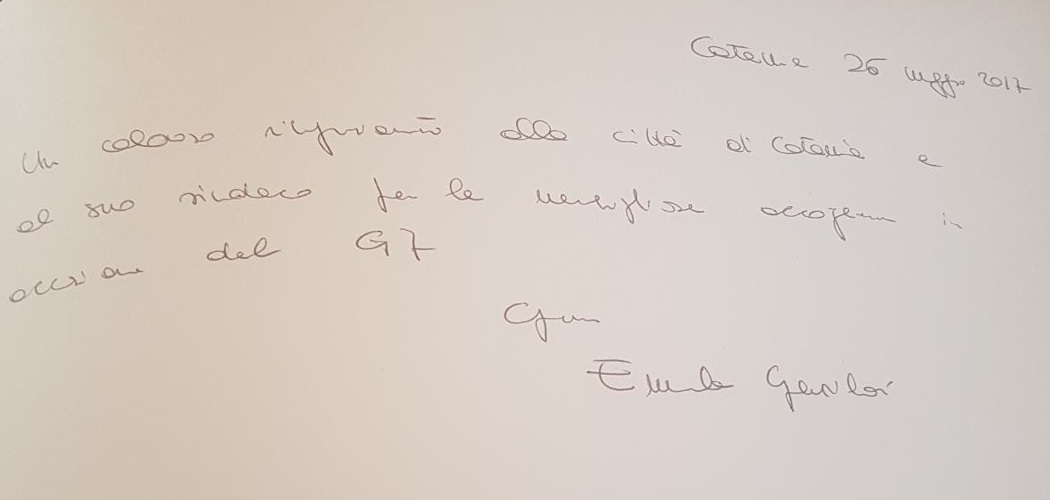 Catania 26 maggio 2017
Un caloroso ringraziamento alla città di Catania e
al suo sindaco per la meravigliosa accoglienza in
occasione del G7
Emanuela Gentiloni